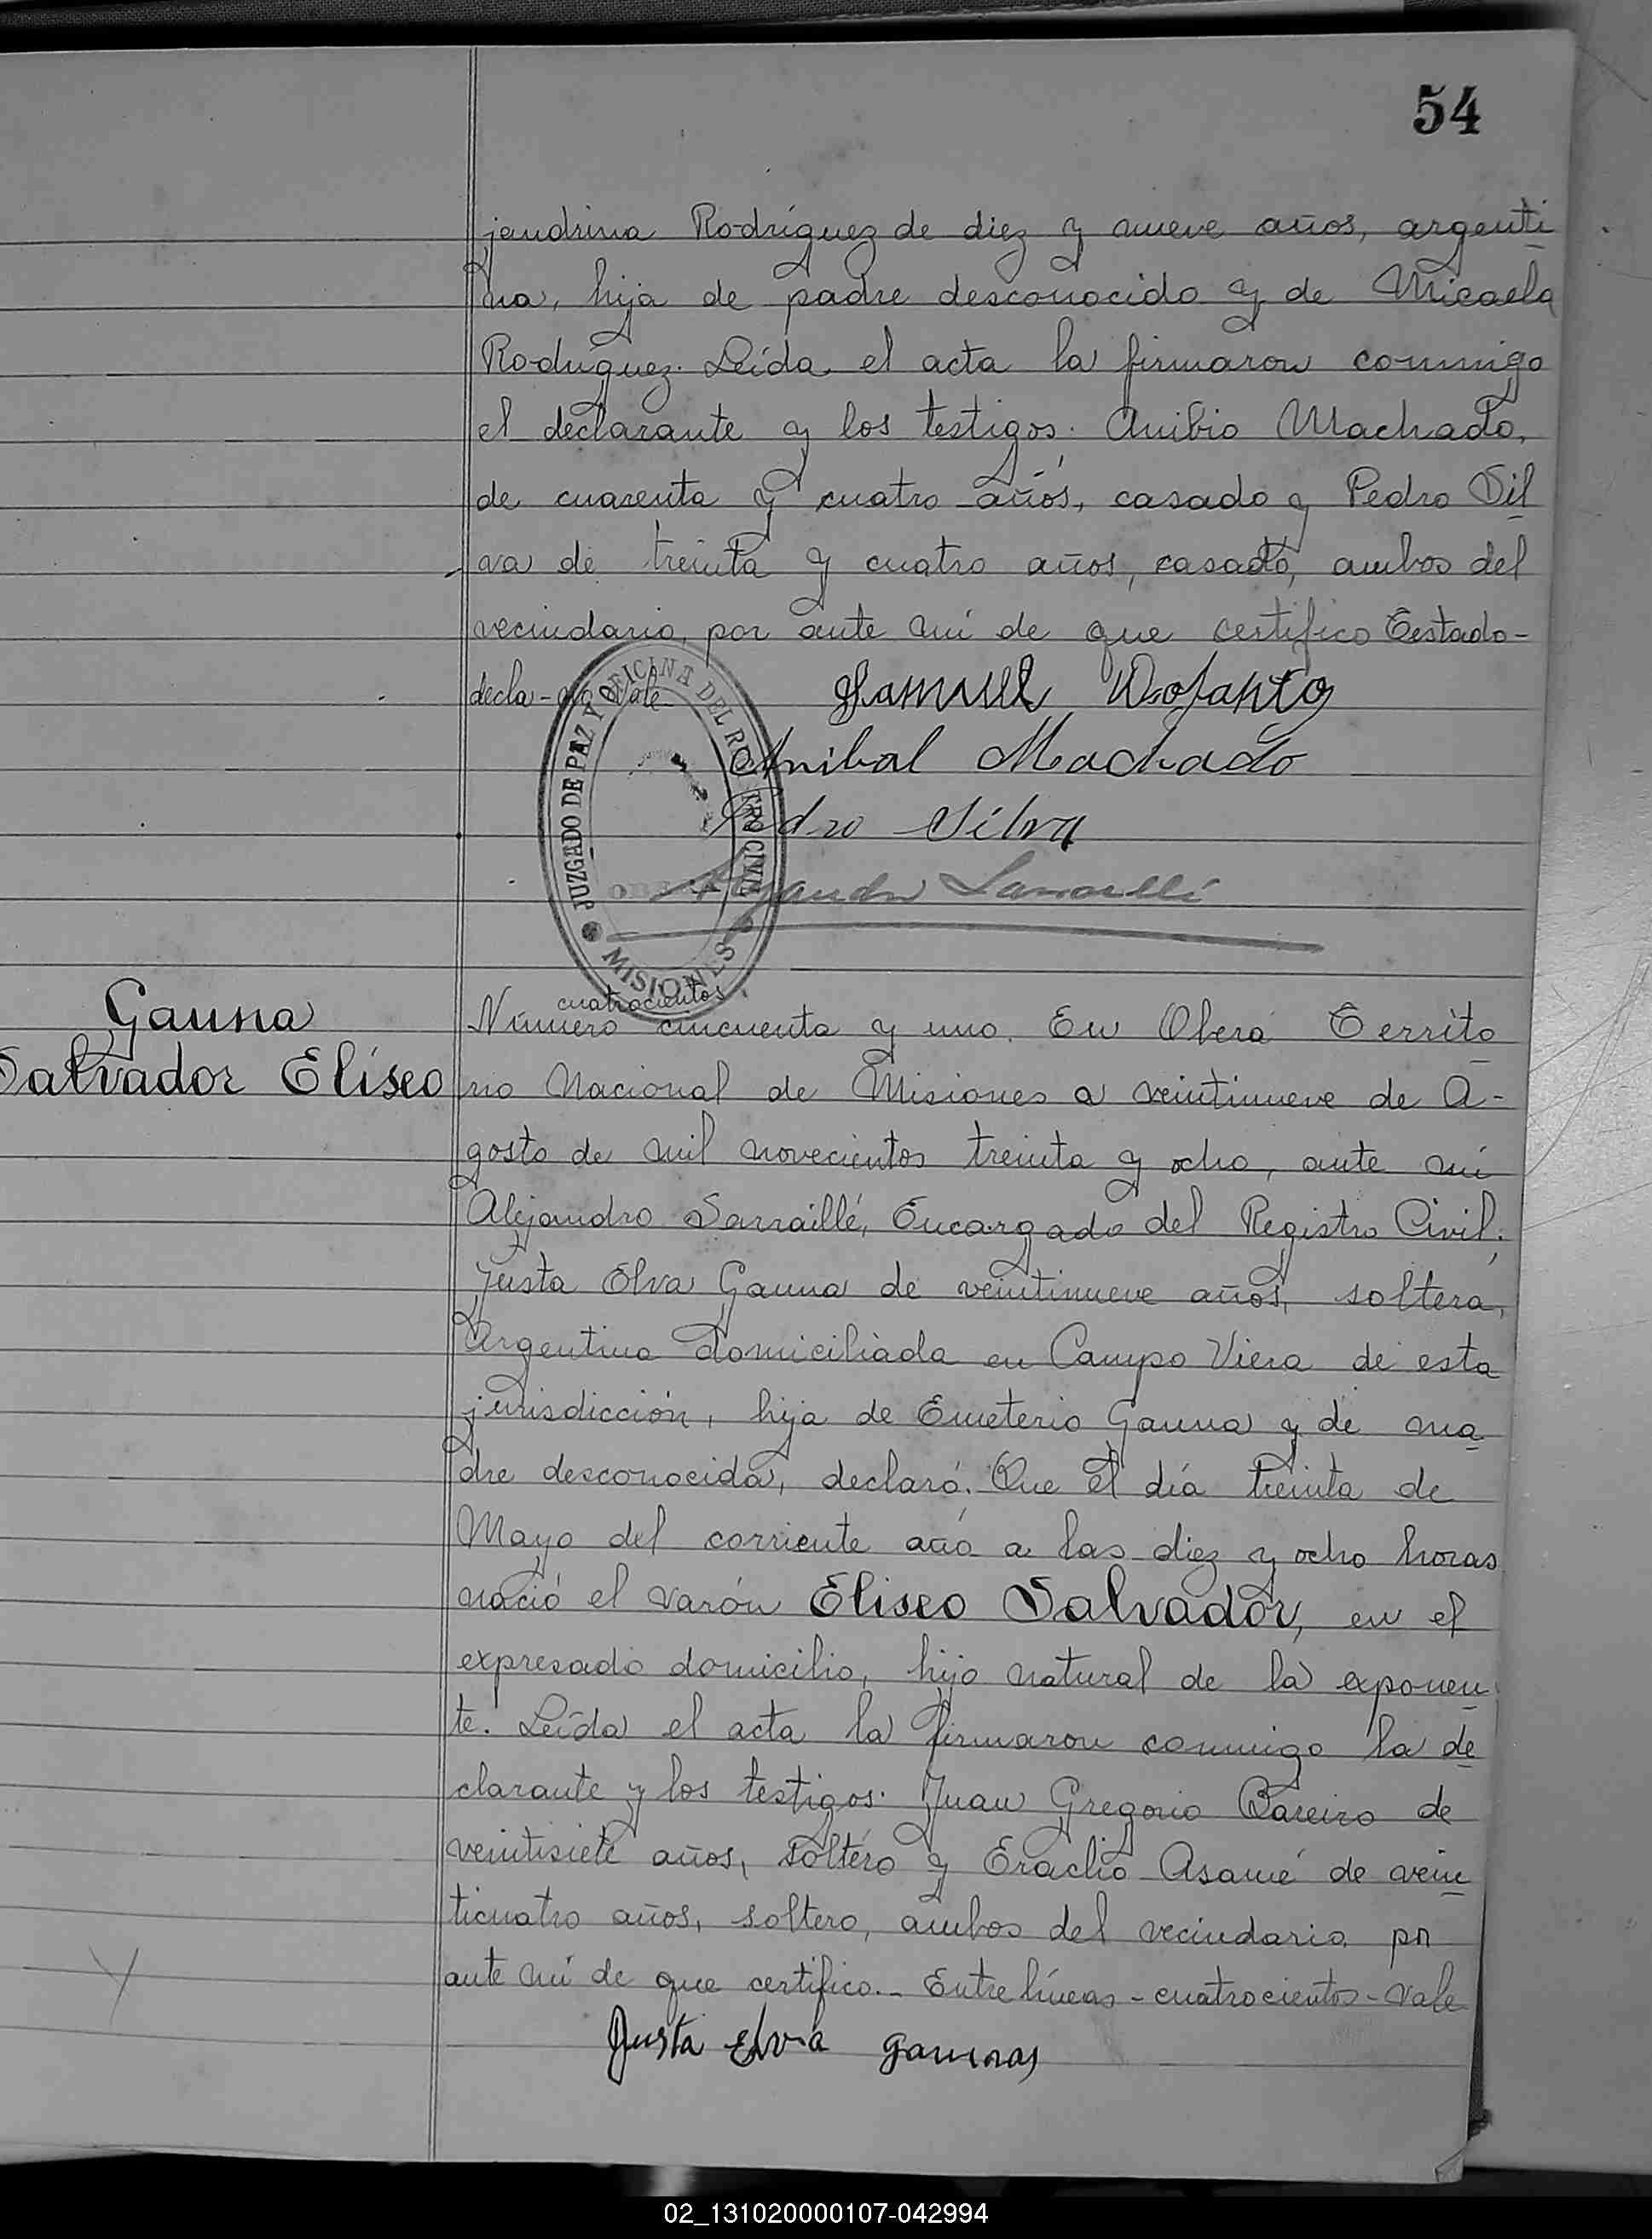 54
jandrina Rodríguez de diez y nueve años, argenti
na, hija de padre desconocido y de Micaela
Rodríguez. Leída el acta la firmaron conmigo
el declarante y los testigos: Anibio Machado,
de cuarenta y cuatro años, casado y Pedro Sil
va de treinta y cuatro años, casado, ambos del
vecindario, por ante mí de que certifico Testado-
decla - no vale
Samuel
Anibal Machado
Pedro Silva
JUZGADO DE PAZ Y OFICINA DEL REGISTRO CIVIL
OBERA
MISIONES
Gauna
Salvador Eliseo
cuatrocientos
Número cincuenta y uno. En Oberá Territo
rio Nacional de Misiones a veintinueve de A-
gosto de mil novecientos treinta y ocho, ante mí
Alejandro Sarraillé, Encargado del Registro Civil;
Justa Elva Gauna de veintinueve años, soltera,
Argentina domiciliada en Campo Viera de esta
jurisdicción, hija de Emeterio Gauna y de ma
dre desconocida, declaró: Que el día treinta de
Mayo del corriente año a las diez y ocho horas
nació el varón Eliseo Salvador, en el
expresado domicilio, hijo natural de la exponen
te. Leída el acta la firmaron conmigo la de
clarante y los testigos: Juan Gregorio Bareiro de
veintisiete años, soltero y Eraclio Asamé de vein
ticuatro años, soltero, ambos del vecindario, por
ante mí de que certifico.- Entre líneas - cuatrocientos - Vale
Justa Elva Gaunas
02_131020000107-042994